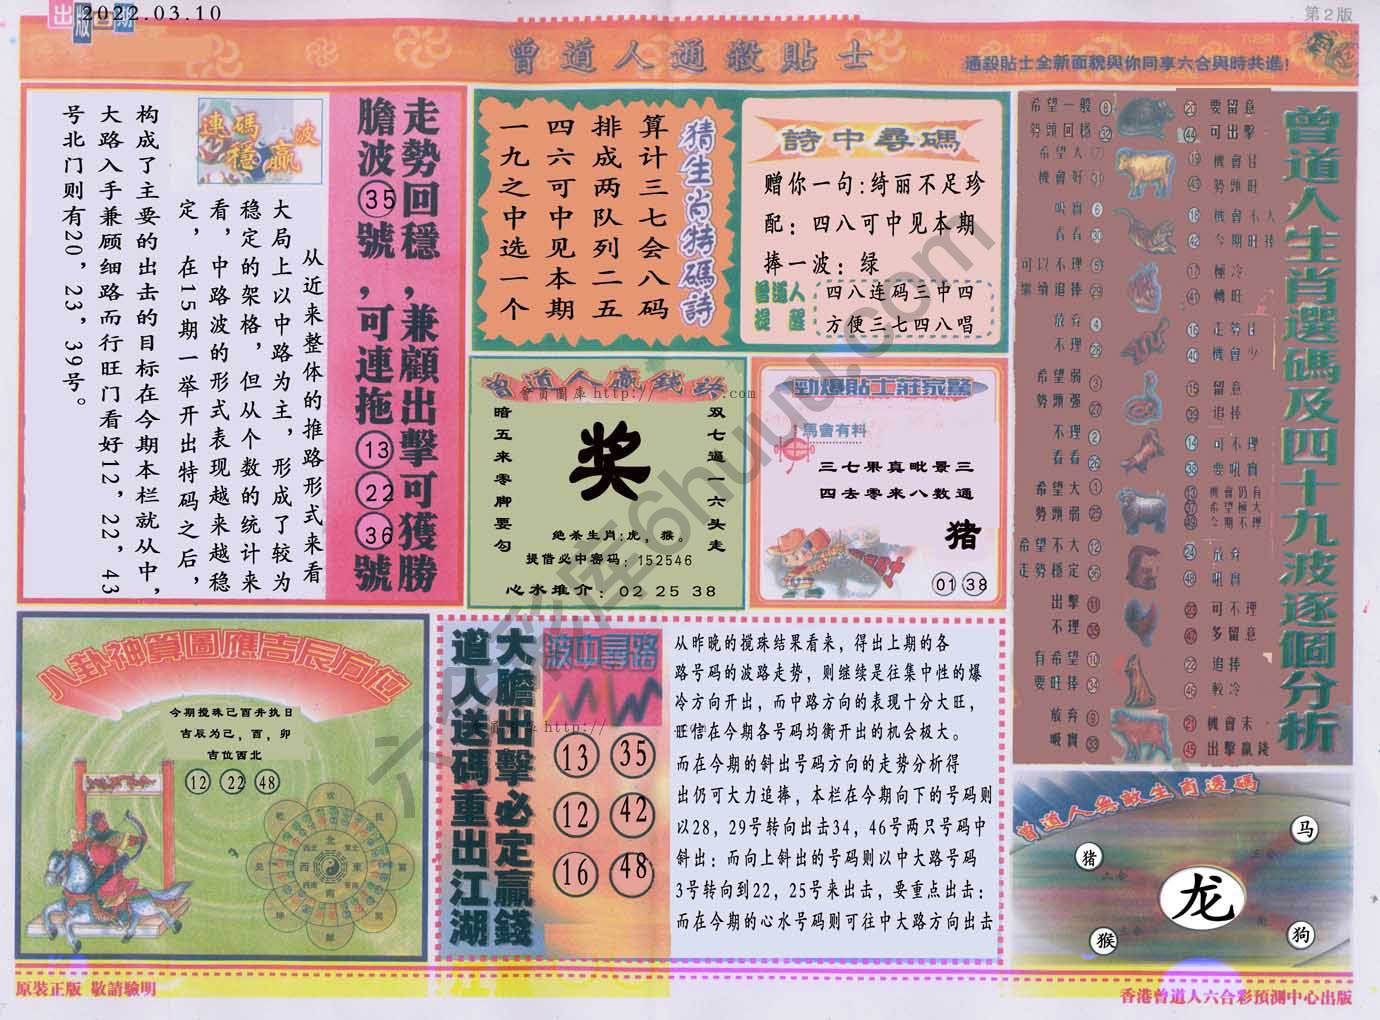 出版日期
2022.03.10
第2版
曾道人通殺貼士
通殺貼士全新面貌與你同享六合與時共進!
走勢回穩,兼顧出擊可獲勝
膽波35號,可連拖132236號
連碼波
穩贏
从近来整体的推路形式来看
大局上以中路为主，形成了较为
稳定的架格，但从个数的统计来
看，中路波的形式表现越来越稳
定，在15期一举开出特码之后，
构成了主要的出击的目标在今期本栏就从中，
大路入手兼顾细路而行旺门看好12，22，43
号北门则有20，23，39号。
猜生肖特碼詩
算计三七会八码
排成两队列二五
四六可中见本期
一九之中选一个
詩中尋碼
赠你一句:绮丽不足珍
配：四八可中见本期
捧一波：绿
曾道人
提醒
四八连码三中四
方便三七四八唱
曾道人贏錢訣
會員圖庫 http://
.com
双七逼一六头走
奖
暗五来零脚要勾
绝杀生肖:虎，猴。
提借必中密码：152546
心水推介：02 25 38
勁爆貼士莊家驚
馬會有料
三七果真毗景三
四去零来八数通
猪
01 38
曾道人生肖選碼及四十九波逐個分析
希望一般 8
20 要留意
勢頭回穩 32
44 可出擊
希望大 7
19 機會佳
機會好 31
43 勢頭旺
吸實 6
18 機會不大
看看 30
42 今期旺捧
可以不理 5
17 極冷
繼續追捧 29
41 轉旺
放弃 4
16 走勢佳
不理 28
40 機會少
希望弱 3
15 留意
勢頭强 27
39 追捧
不理 2
14 可不理
看看 26
38 要吼實
希望大 1
13 機會仍有
37 希望極大
勢頭弱 25
49 今期不理
希望不大 12
24 放弃
走勢穩定 36
48 吼實
出擊 11
23 可不理
不理 35
47 多留意
有希望 10
22 追捧
要旺捧 34
46 較冷
放弃 9
21 機會末
吸實 33
45 出擊贏錢
八卦神算圖應吉辰方位
今期搅珠己酉并执日
吉辰为己，酉，卯
吉位西北
12 22 48
大膽出擊必定贏錢
道人送碼重出江湖
波中尋路
會員圖庫 http://
13 35
12 42
16 48
从昨晚的搅珠结果看来，得出上期的各
路号码的波路走势，则继续是往集中性的爆
冷方向开出，而中路方向的表现十分大旺，
旺信在今期各号码均衡开出的机会极大。
而在今期的斜出号码方向的走势分析得
出仍可大力追捧，本栏在今期向下的号码则
以28，29号转向出击34，46号两只号码中
斜出：而向上斜出的号码则以中大路号码
3号转向到22，25号来出击，要重点出击：
而在今期的心水号码则可往中大路方向出击
曾道人無敵生肖透碼
马
猪
龙
猴
狗
六彩库6huuu.com
原裝正版 敬請驗明
香港曾道人六合彩預測中心出版